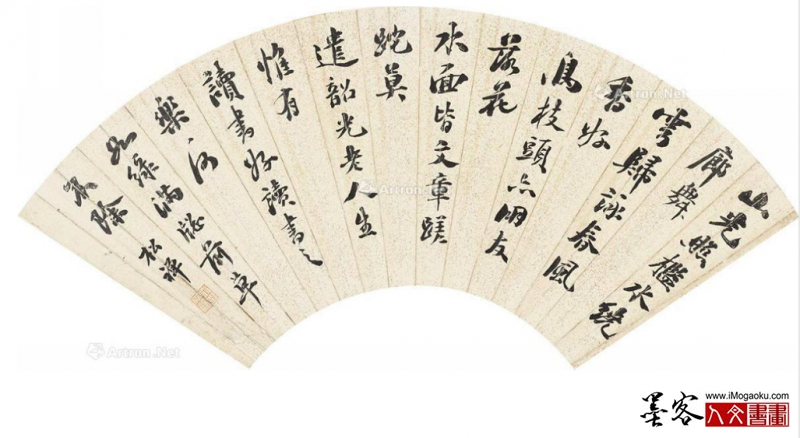 山光照檻水繞
廊舞
雩歸詠春風
香好
鳥枝頭亦朋友
落花
水面皆文章蹉
跎莫
遣韶光老人生
惟有
讀書好讀書之
樂何
如綠滿窗前草
不除 松禪
Artron.Net
Artron.Net
Artron.Net
Artron.Net
墨客
www.iMogaoku.com
人文書畫